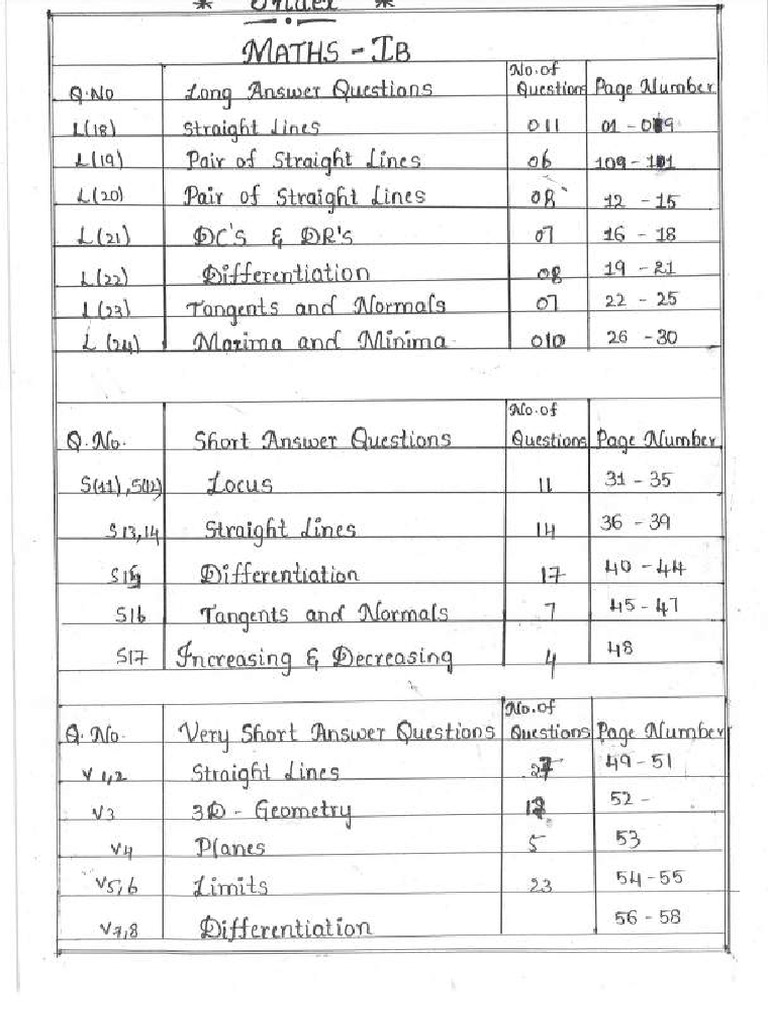 * Order *
MATHS - IB
Q.No Long Answer Questions No. of Questions Page Number
L(18) Straight Lines 011 01 - 09
L(19) Pair of Straight Lines 06 - 
L(20) Pair of Straight Lines 08 12 - 15
L(21) DC'S & DR'S 07 16 - 18
L(22) Differentiation 08 19 - 21
L(23) Tangents and Normals 07 22 - 25
L(24) Maxima and Minima 010 26 - 30
Q.No. Short Answer Questions No. of Questions Page Number
S(11), S(12) Locus 11 31 - 35
S13,14 Straight Lines 14 36 - 39
S15 Differentiation 17 40 - 44
S16 Tangents and Normals 7 45 - 47
S17 Increasing & Decreasing 4 48
Q.No. Very Short Answer Questions No. of Questions Page Number
V1,2 Straight Lines 49 - 51
V3 3D - Geometry 52 -
V4 Planes 5 53
V5,6 Limits 23 54 - 55
V7,8 Differentiation 56 - 58